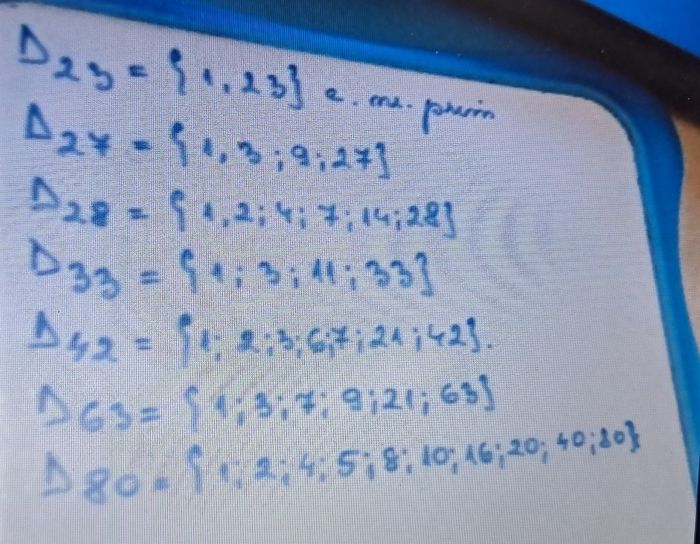 D₂₃ = {1, 23} e. nr. prim
D₂₇ = {1, 3; 9; 27}
D₂₈ = {1, 2; 4; 7; 14; 28}
D₃₃ = {1; 3; 11; 33}
D₄₂ = {1; 2; 3; 6; 7; 21; 42}.
D₆₃ = {1; 3; 7; 9; 21; 63}
D₈₀ = {1; 2; 4; 5; 8; 10; 16; 20; 40; 80}